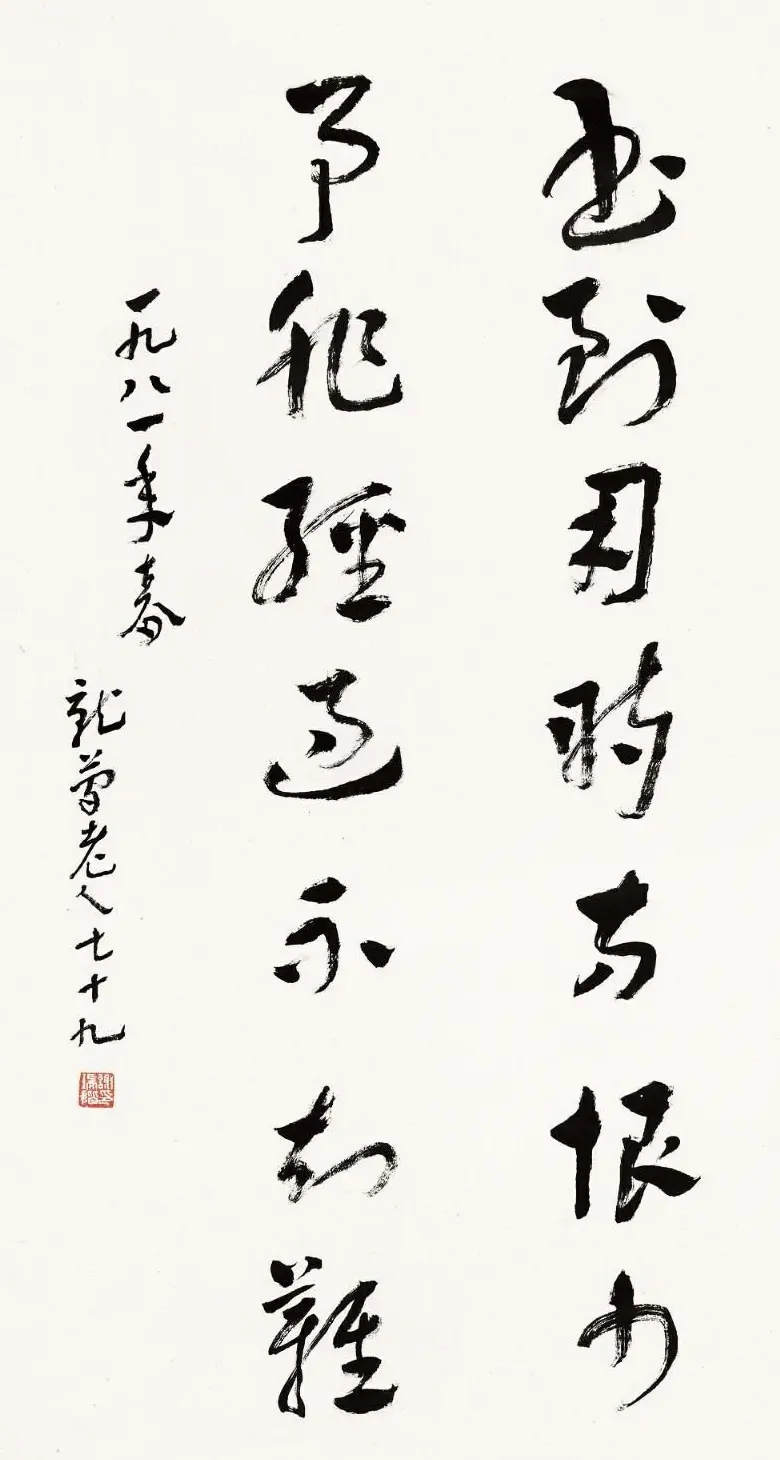 書到用時方恨少
事非經過不知難
一九八一年春
老人七十九